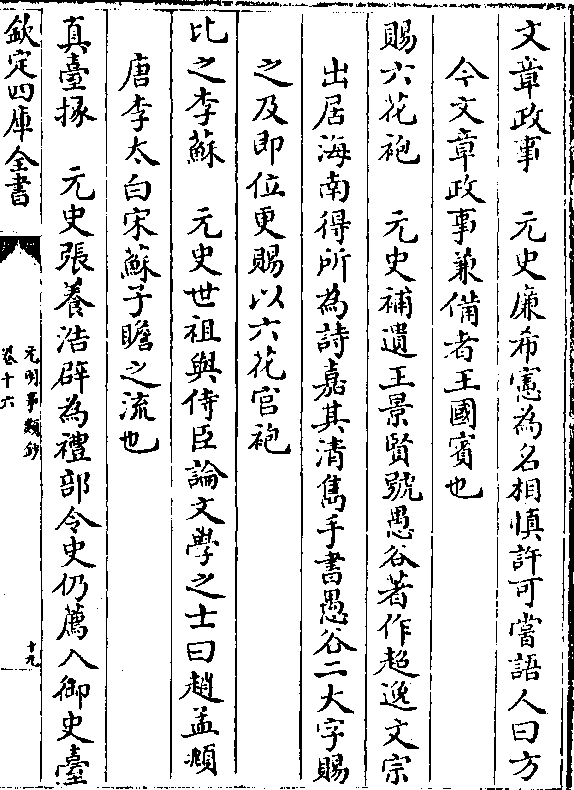 文章政事　元史廉希憲為名相慎許可嘗語人曰方
今文章政事兼備者王國賓也
賜六花袍　元史補遺王景賢號愚谷著作超逸文宗
出居海南得所為詩嘉其清雋手書愚谷二大字賜
之及即位更賜以六花官袍
比之李蘇　元史世祖與侍臣論文學之士曰趙孟頫
唐李太白宋蘇子瞻之流也
真臺掾　元史張養浩辟為禮部令史仍薦入御史臺
欽定四庫全書
元明事類鈔
卷十六
十九